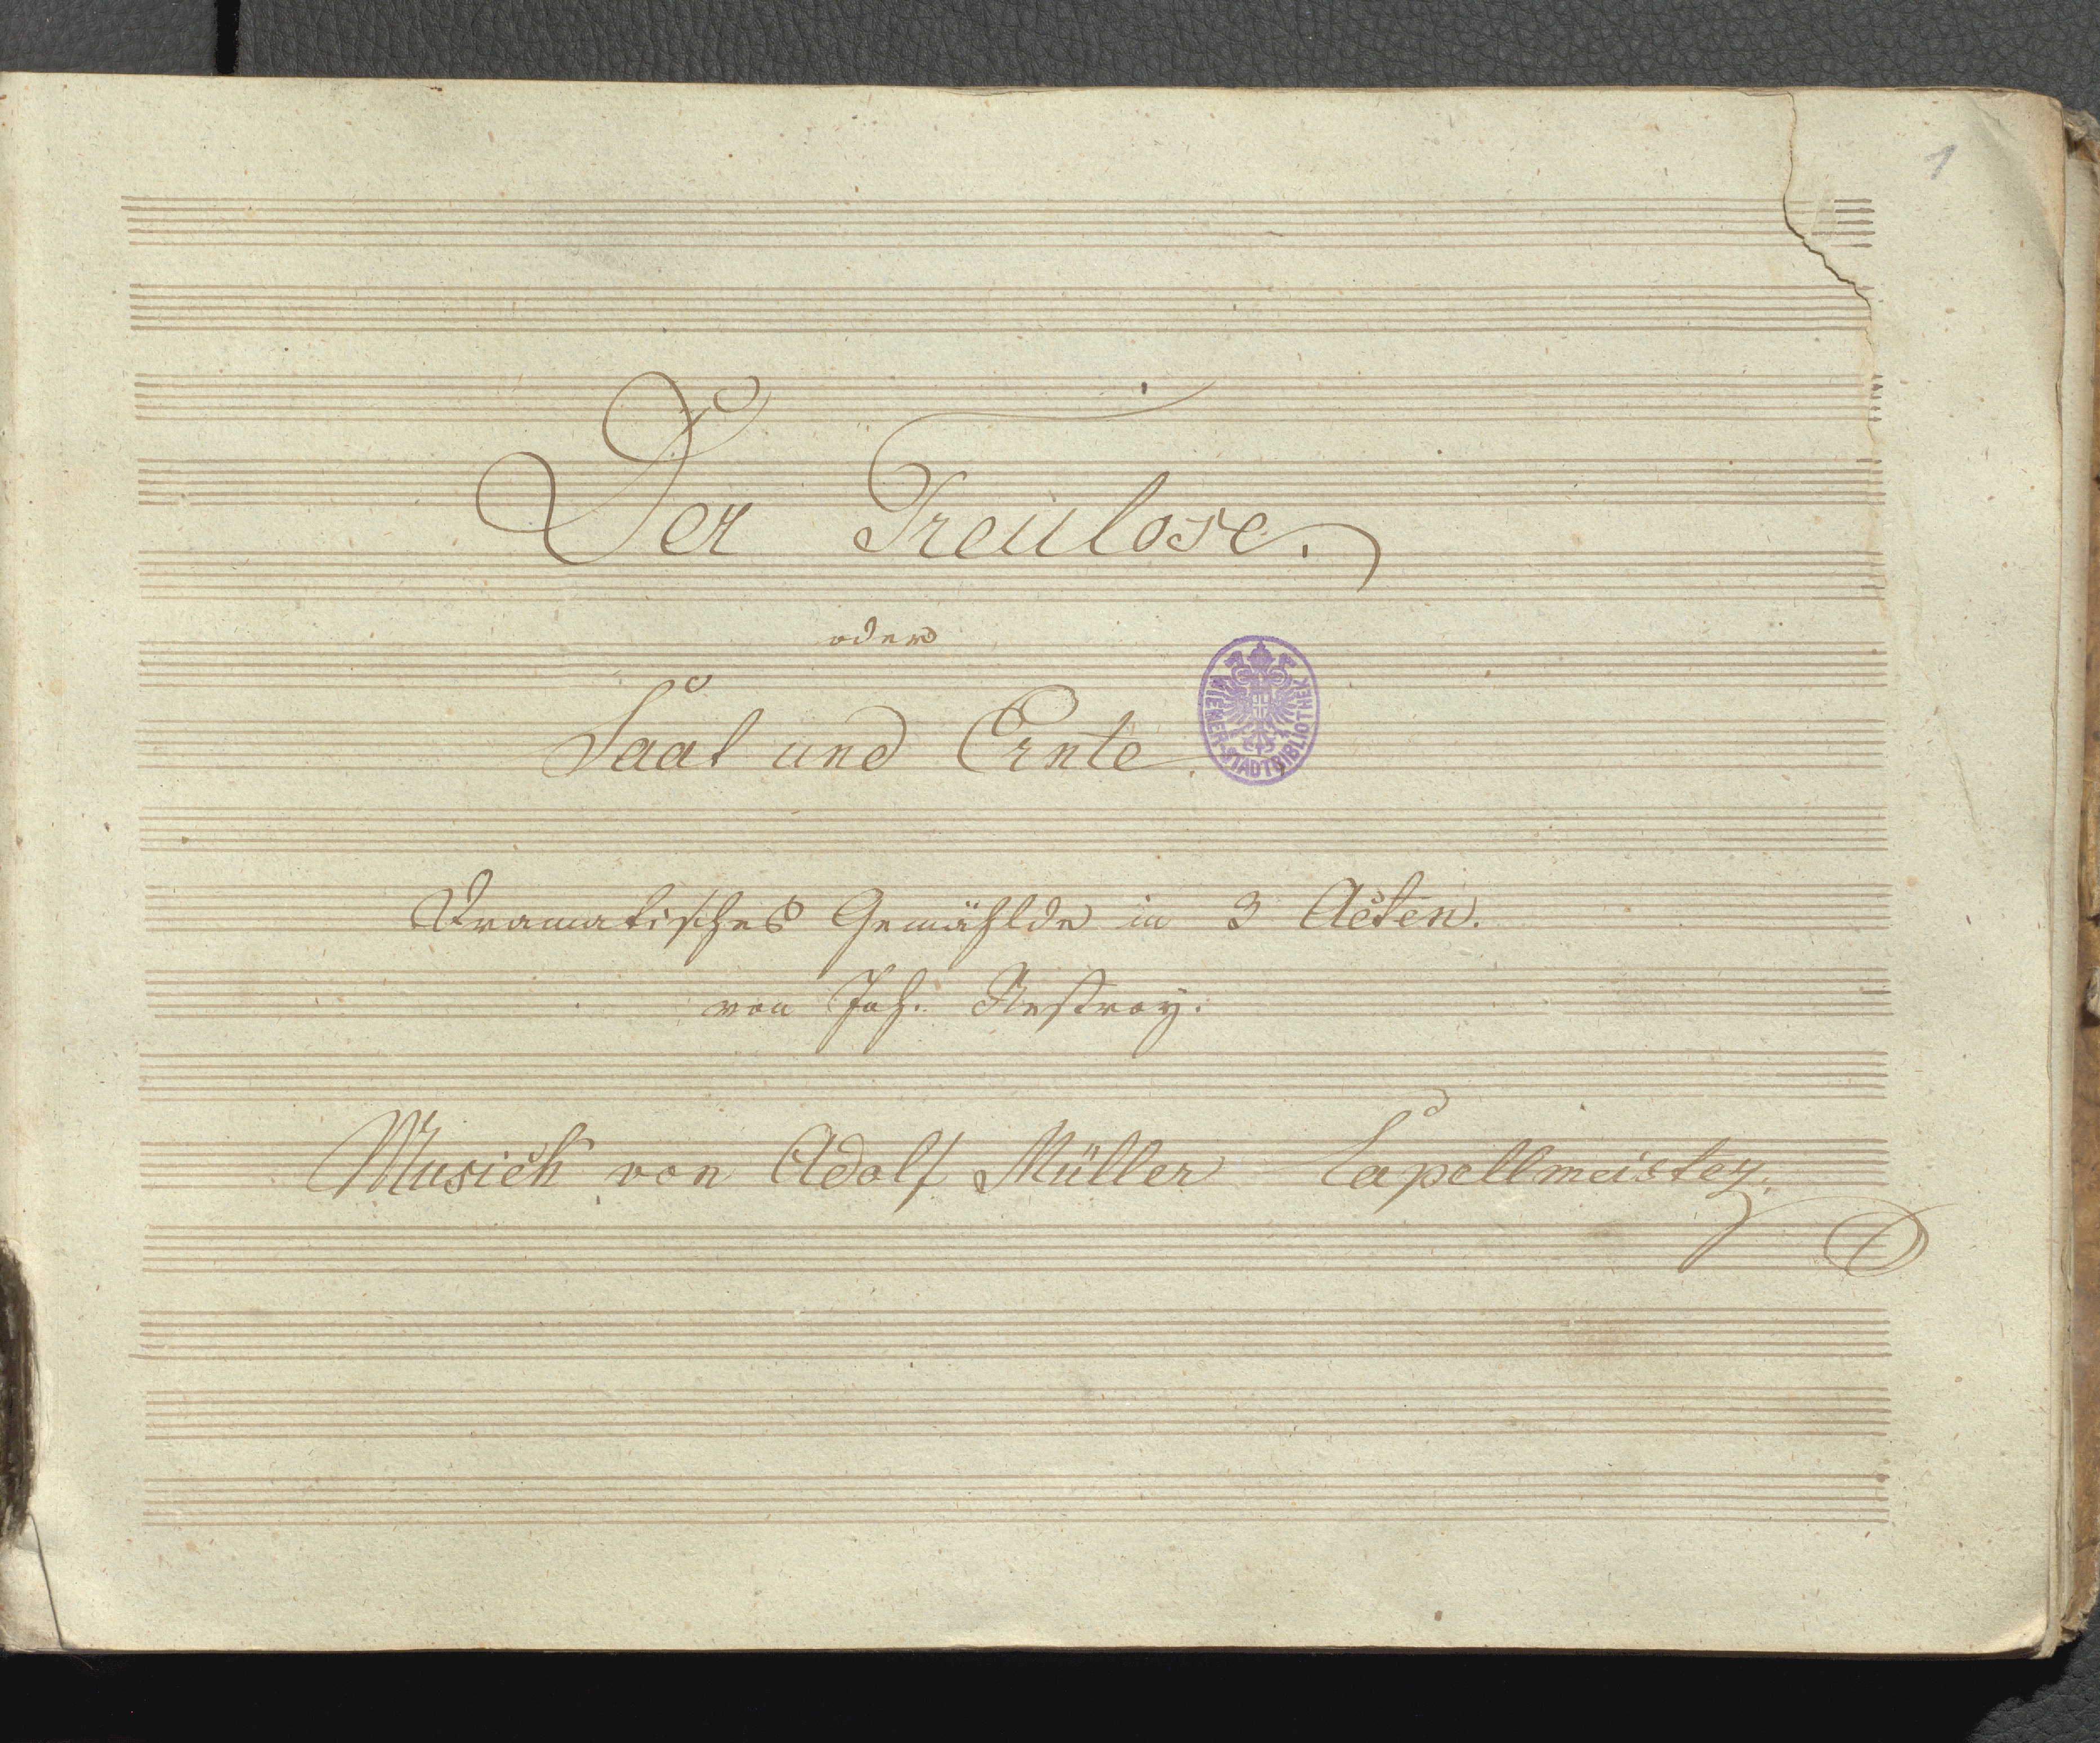 1
Der Treulose.
oder
Saat und Ernte.
WIENER-STADTBIBLIOTHEK
Dramatisches Gemählde in 3 Acten.
von Joh. Nestroy.
Musick von Adolf Müller Capellmeister.